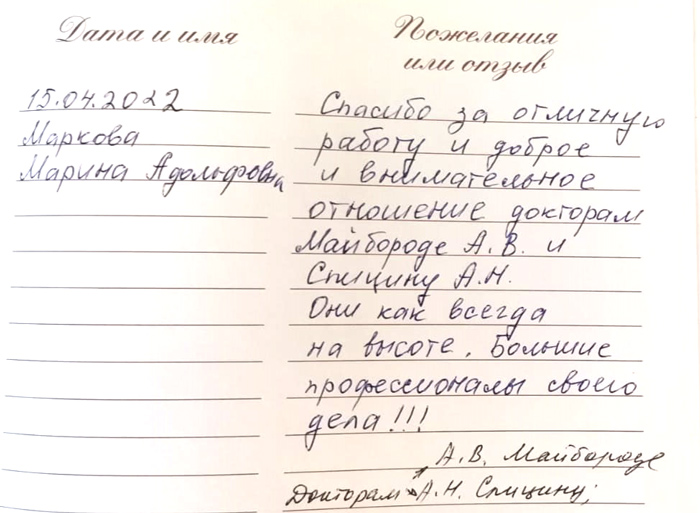 Дата и имя
Пожелания
или отзыв
15.04.2022
Маркова
Марина Адольфовна
Спасибо за отличную
работу и доброе
и внимательное
отношение докторам
Майбороде А.В. и
Спицину А.Н.
Они как всегда
на высоте. Большие
профессионалы своего
дела!!!
А.В. Майбороде
Докторам А.Н. Спицину;